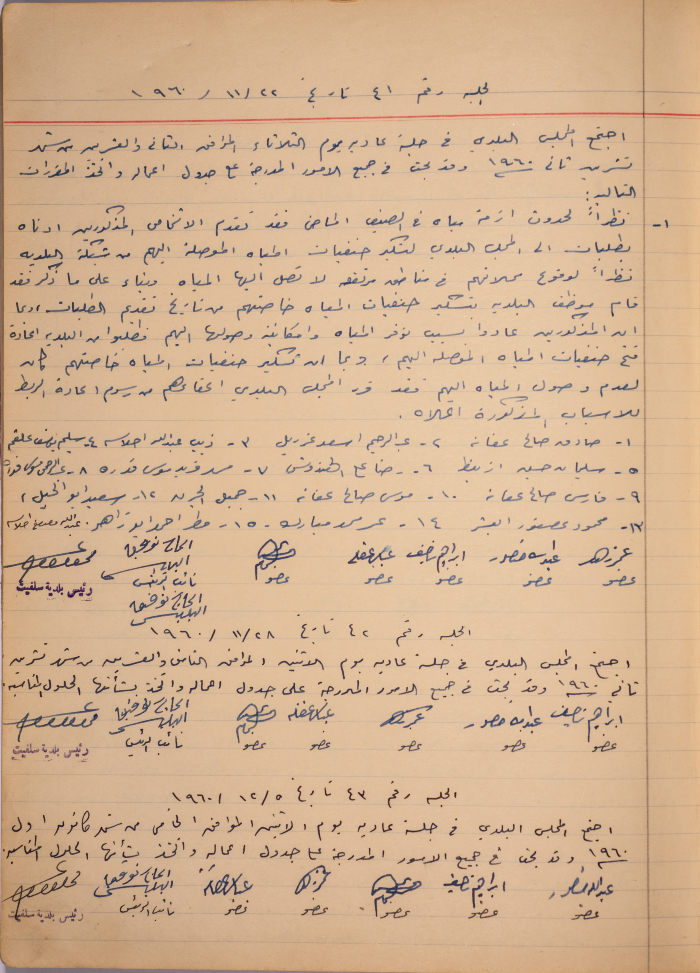 الجلسه رقم ٤١ تاريخ ٢٢ / ١١ / ١٩٦٠
اجتمع المجلس البلدي في جلسة عاديه يوم الثلاثاء الموافق الثاني والعشرين من شهر
تشرين ثاني ١٩٦٠ وقد بحث في جميع الامور المدرجة على جدول اعماله واتخذ المقررات
التاليه:
١- نظراً لحدوث ازمة مياه في الصيف الماضي فقد تقدم الاشخاص المذكورين ادناه
بطلبات الى المجلس البلدي لتسكير حنفيات المياه الموصلة اليهم من شبكة البلديه
نظراً لوقوع محلاتهم في مناطق مرتفعه لا تصل اليها المياه وبناء على ما ذكر فقد
قام موظف البلديه بتسكير حنفيات المياه خاصتهم من تاريخ تقديم الطلبات، وبما
ان المذكورين عادوا بسبب توفر المياه وامكانية وصولها اليهم فطلبوا من البلديه اعادة
فتح حنفيات المياه الموصله اليهم، وبما ان تسكير حنفيات المياه خاصتهم كان
لعدم وصول المياه اليهم فقد قرر المجلس البلدي اعفاءهم من رسوم اعادة الربط
للاسباب المذكورة اعلاه.
١- صادق صالح عفانه ٢- عبد الرحيم اسعد عزريل ٣- ذيب عبدالله ٤- سليم يوسف
٥- سليمان حسين ٦- ٧- محمد فريد موسى قدوره ٨-
٩- فارس صالح عفانه ١٠- موسى صالح عفانه ١١- جميل ١٢- سعيد ابو
١٣- محمود عصفور ١٤- عمر محمد مبارك ١٥- مطر احمد ابو زاهر
عبدالله منصور ابراهيم نصيف الحاج توفيق
عضو عضو عضو عضو عضو نائب الرئيس رئيس بلدية سلفيت
الحاج توفيق
الجلسه رقم ٤٢ تاريخ ٢٨ / ١١ / ١٩٦٠
اجتمع المجلس البلدي في جلسة عاديه يوم الاثنين الموافق الثامن والعشرين من شهر تشرين
ثاني ١٩٦٠ وقد بحث في جميع الامور المدرجة على جدول اعماله واتخذ بشأنها الحلول المناسبه.
ابراهيم نصيف عبدالله منصور الحاج توفيق
عضو عضو عضو عضو عضو نائب الرئيس رئيس بلدية سلفيت
الجلسه رقم ٤٣ تاريخ ٥ / ١٢ / ١٩٦٠
اجتمع المجلس البلدي في جلسة عاديه يوم الاثنين الموافق الخامس من شهر كانون اول
١٩٦٠ وقد بحث في جميع الامور المدرجة على جدول اعماله واتخذ بشأنها الحلول المناسبه.
عبدالله منصور ابراهيم نصيف الحاج توفيق
عضو عضو عضو عضو عضو نائب الرئيس رئيس بلدية سلفيت